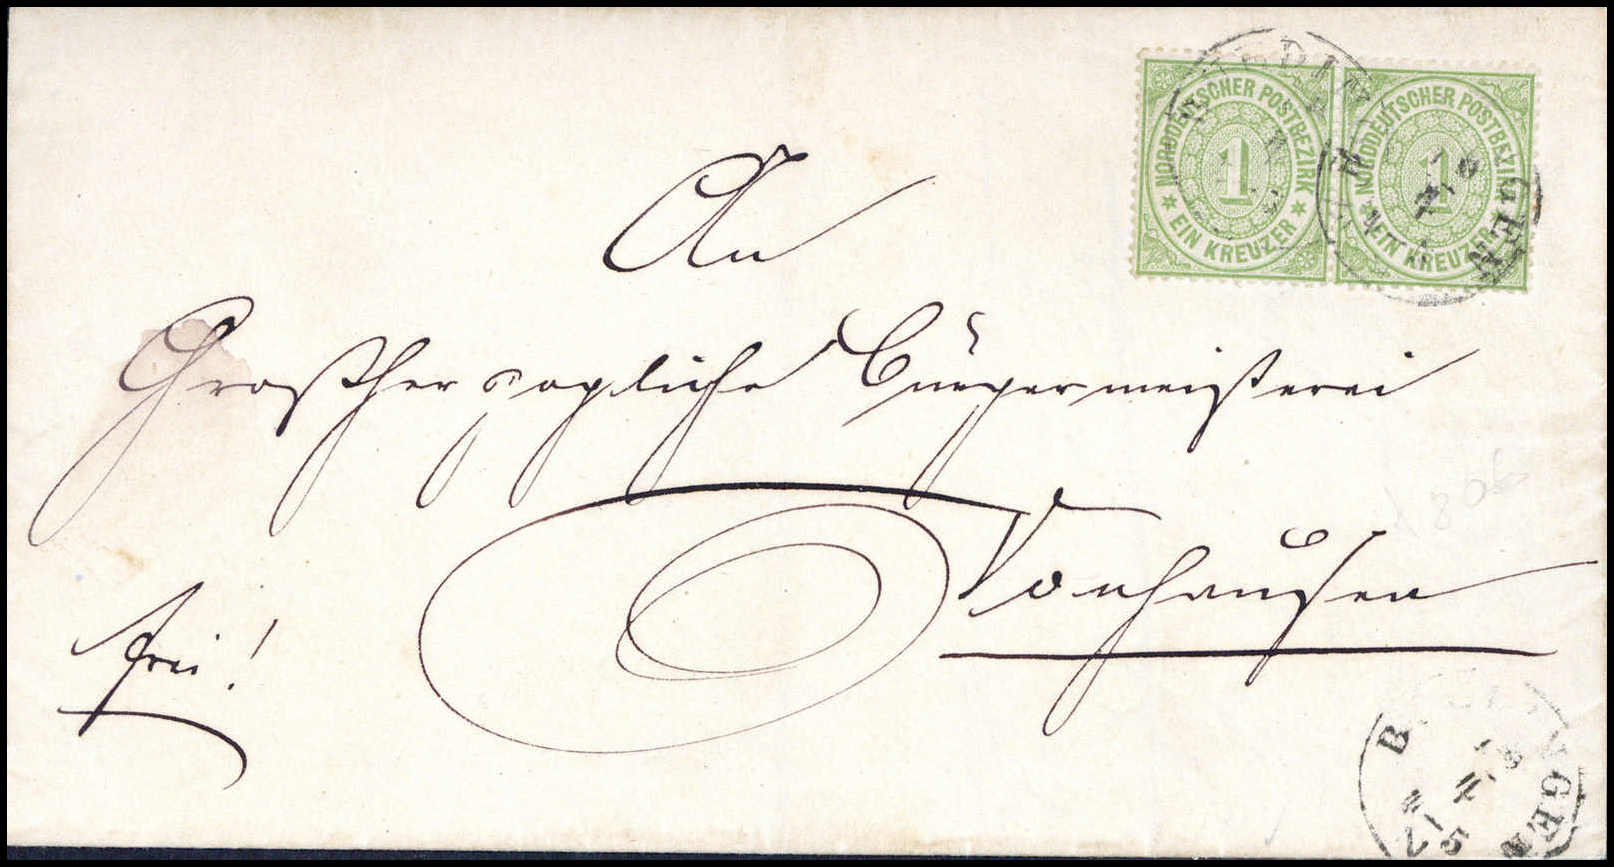 NORDDEUTSCHER POSTBEZIRK
1
* EIN KREUZER *
NORDDEUTSCHER POSTBEZIRK
1
EIN KREUZER
An
Großherzogliche Bürgermeisterei
Vonhausen
frei!